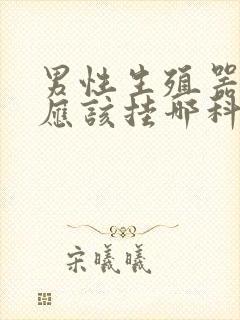 男性生殖器
應該挂哪科
宋曦曦